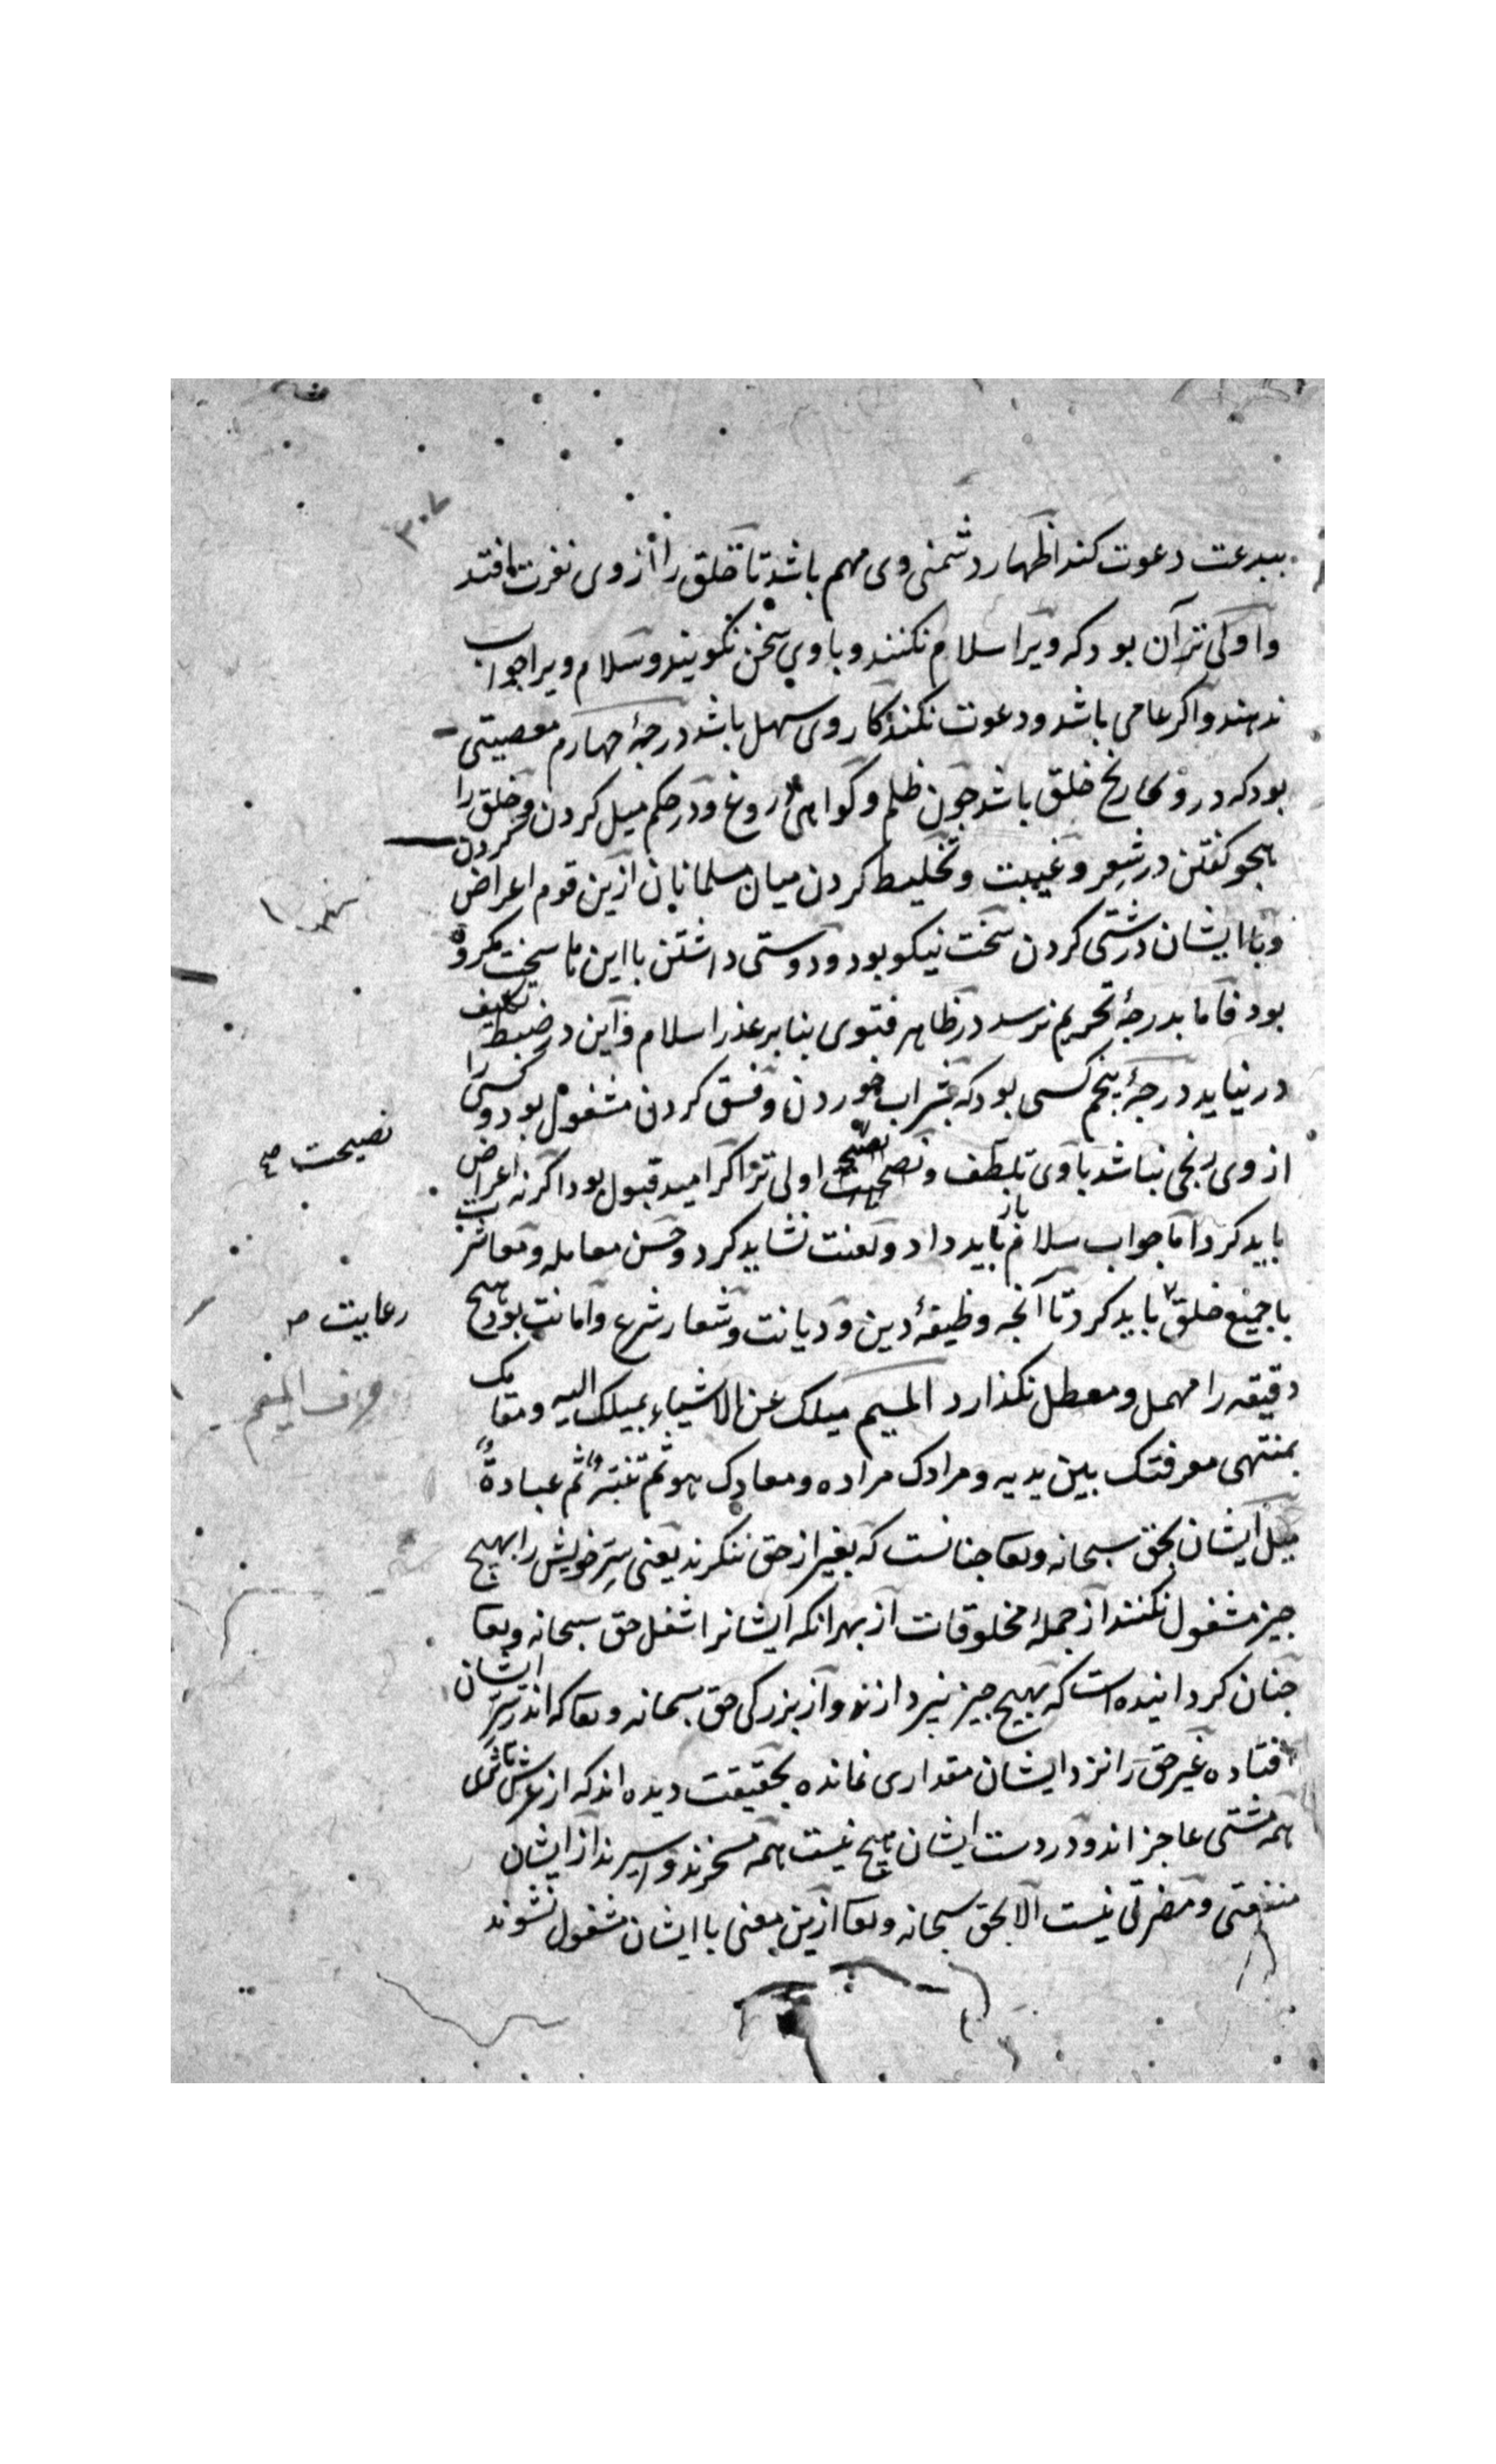 ۳۰۷
ببدعت دعوت کند اظهار دشمنی وی مهم باشد تا خلق را از وی نفرت افتد
و اولی تر آن بود که ویرا سلام نکنند و با وی سخن نکویند و سلام ویرا جواب
ندهند و اکر عامی باشد و دعوت نکند کار وی سهل باشد درجهٔ چهارم معصیتی
بود که در وی رنج خلق باشد چون ظلم و کواهی دروغ و در حکم میل کردن و خلق را
هجو کفتن در شعر و غیبت و تخلیط کردن میان مسلمانان ازین قوم اعراض کردن
و با ایشان درشتی کردن سخت نیکو بود و دوستی داشتن با این ها سخت مکروه
بود فاما بدرجهٔ تحریم نرسد در ظاهر فتوی بنا بر عذر اسلام و این در ضبط تکلیف
در نیاید درجهٔ پنجم کسی بود که بشراب خوردن و فسق کردن مشغول بود و کسی را
از وی رنجی نباشد با وی تلطف و نصیحت اولی تر اکر امید قبول بود اکر نه اعراض
باید کرد اما جواب سلام باز باید داد و لعنت نشاید کرد و حسن معامله و معاشرت
با جمیع خلق باید کرد تا آنچه وظیفهٔ دین و دیانت و شعار شرع و امانت بود هیچ
دقیقه را مهمل و معطل نکذارد المیم میلک عن الاشیاء بمیلک الیه و مقامک
بمنتهی معرفتک بین یدیه و مرادک مراده و معادک هو ثم ثم عبادة
میل ایشان بحق سبحانه وتعا چنانست که بغیر از حق ننکرند یعنی سر خویش را بهیچ
چیز مشغول نکنند از جملهٔ مخلوقات از بهر انکه ایشانرا شغل حق سبحانه وتعا
چنان کردانیده است که بهیچ چیز نپردازند و از بزرکی حق سبحانه وتعا که اندر سر ایشان
افتاده غیر حق را نزد ایشان مقداری نمانده بحقیقت دیده اند که از عرش تا ثری
همه مشتی عاجز اند و در دست ایشان هیچ نیست همه مسخرند و اسیرند از ایشان
منفعتی و مضرتی نیست الا بحق سبحانه وتعا ازین معنی با ایشان مشغول نشوند
نصیحت صح
رعایت
حرف المیم